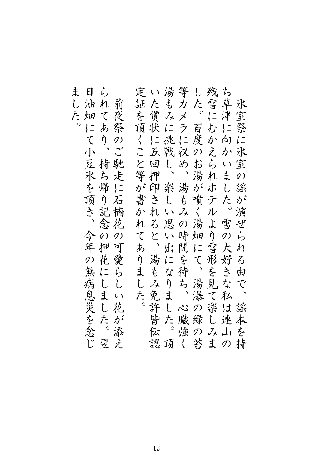 氷室祭に氷室の謡が演ぜられる由で、謡本を持
ち草津に向かいました。雪の大好きな私は連山の
残雪にむかえられホテルより雪形を見て楽しみま
した。百度のお湯が噴く湯畑にて、湯瀑の緑の苔
等カメラに収め、湯もみの時間を待ち、心臓強く
湯もみに挑戦し、楽しい思い出になりました。頂
いた賞状に五回押印されると、湯もみ免許皆伝認
定証を頂くこと等が書かれてありました。
前夜祭のご馳走に石楠花の可愛らしい花が添え
られてあり、持ち帰り記念の押花にしました。翌
日湯畑にて小豆氷を頂き、今年の無病息災を念じ
ました。